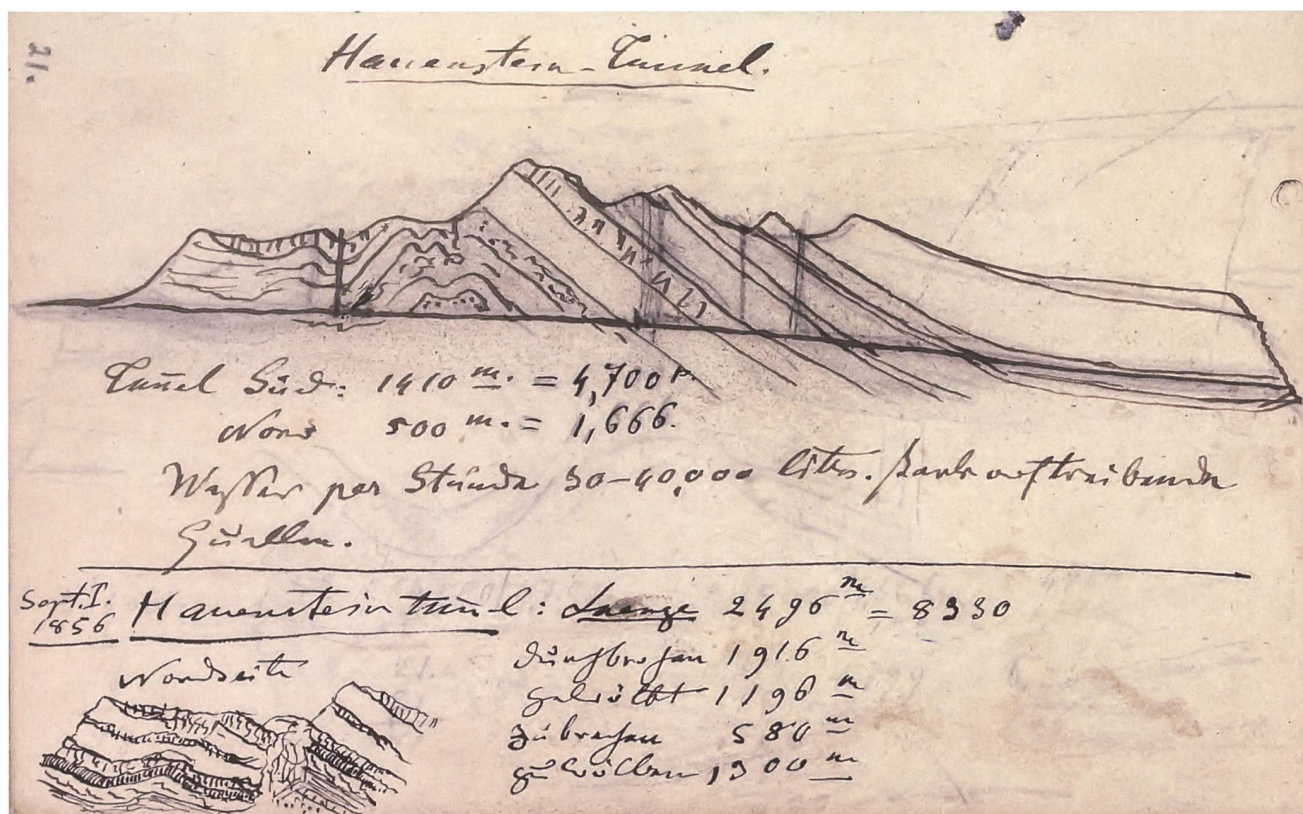 21.
Hauenstein-Tunnel.
Tunel Süd: 1410 m. = 4,700 F.
Nord 500 m. = 1,666.
Wasser per Stunde 30-40,000 liter. stark auftreibende
Quellen.
Sept. I. 1856
Hauenstein tunel: Laenge 2496 m = 8330
durchbrochen 1916 m
gewölbt 1196 m
zu brechen 580 m
zu wölben 1300 m
Nordseite